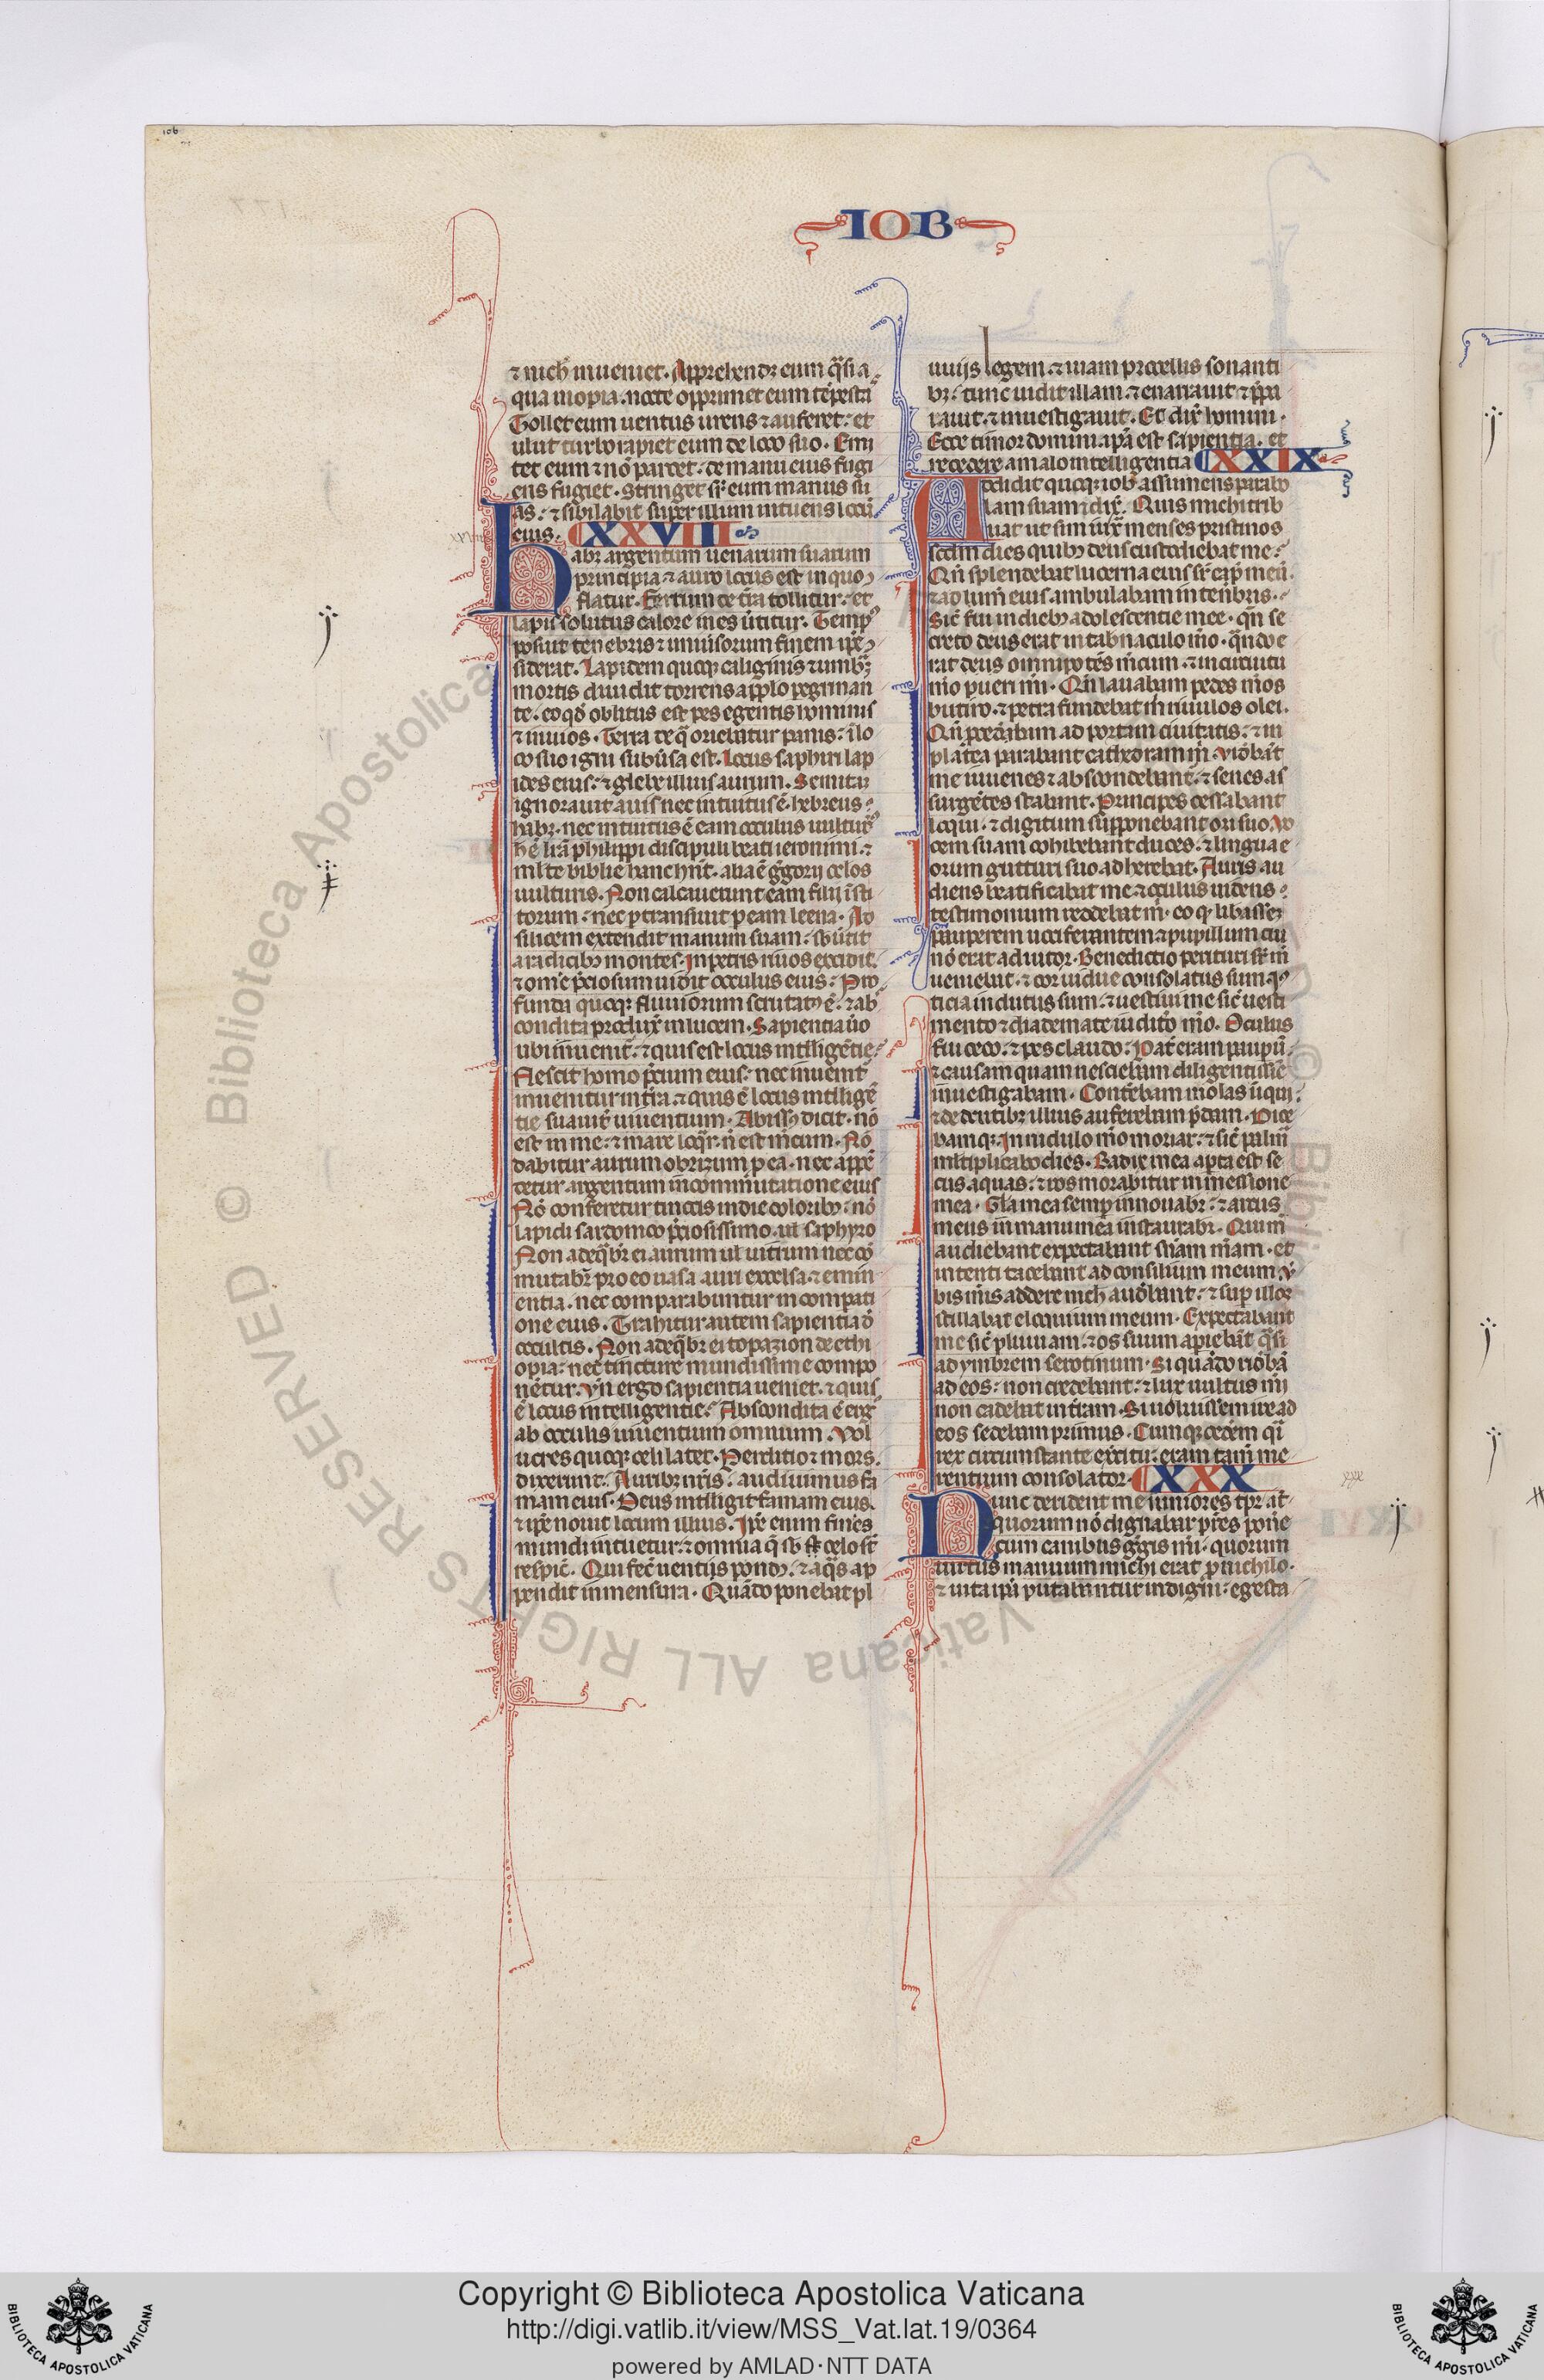 IOB
⁊ nich̄ inueniet. Apprehendet eum q̄si a
qua inopia. nocte opprimet eum tēpesta
Tollet eum uentus urens ⁊ auferet. et
ulut turbo rapiet eum de loco suo. Emi
tet eum ⁊ nō parcet. de manu eius fugi
ens fugiet. Stringet sr̄ eum manus su
as. ⁊ sibilabit super illum intuens locū
eius. XXVIII
Habꝫ argentum uenarum suarum
principia ⁊ auro locus est in quo ꝯ
flatur. Ferrum de t̄ra tollitur. et
lapis solutus calore in es ūtitur. Tempꝰ
posuit tenebris ⁊ uniuisorum finem ip̄e ꝯ
siderat. Lapidem quoqꝫ caliginis ⁊ umbꝫ
mortis diuidit torrens a pp̄lo pegrinan
te. eo qd̄ oblitus est pes egentis hominis
⁊ inuios. Terra de q̄ oriebatur panis. ī lo
co suo igni subūsa est. Locus saphiri lap
ides eius. ⁊ glebe illius aurum. Semitā
ignorauit auis nec intuitus ē. hebreus.
habꝫ. nec intuitus ē eam oculus uulturꝭ
h̄ ē lr̄a philippi discipuli beati ieronimi. ⁊
ml̄te biblie hanc hn̄t. alia ē g̓gorii celos
uulturis. Non calcauerunt eam filii ī sti
torum. nec ꝑtransiuit ꝑ eam leena. Ad
silicem extendit manum suam. sb̄ūtit
a radicibꝫ montes. In petris riuos excidit.
⁊ om̄e p̄ciosum uidit occulus eius. Pro
funda quoqꝫ fluuiorum scrutatꝰ ē. ⁊ ab
condita produx̄ in lucem. Sapientia ūo
ubi inuenit̄. ⁊ quis est locus intelligētie.
Nescit homo p̄cium eius. nec inuenit̄
inuenitur in t̄ra. ⁊ quis ē locus intllige
tie suauit̄ uiuentium. Abissꝰ dicit. nō
est in me. ⁊ mare loq̄r. n̄ est mecum. Nō
dabitur aurum obrizum ꝑ ea. nec appē
detur argentum in commutatione eius
Nō conferetur tinctis indie coloribꝫ. nō
lapidi sardonico p̄ciosissimo. ul̄ saphyro
Non adeq̄bꝫ ei aurum ul̄ uitrum nec cō
mutabꝫ pro eo uasa auri excelsa. ⁊ emin
entia. nec comparabuntur in compati
one eius. Trahitur autem sapientia d̄
occultis. Non adeq̄bꝫ ei topazion de ethi
opia. nec tincture mundissime compo
nētur. Vn̄ ergo sapientia ueniet. ⁊ quis
ē locus intelligentie. Abscondita ē erg̊
ab occulis uiuentium omnium. Vol
ucres quoqꝫ celi latet. Perditio ⁊ mors.
dixerunt. Auribꝫ nr̄is. audiuimus fa
mam eius. Deus intlligit famam eius.
⁊ ip̄e nouit locum illius. Ip̄e enim fines
mundi intuetur. ⁊ omnia q̄ sb̄ celo st̄
respic̄. Qui fec̄ uentiis pondꝰ. ⁊ aq̄s ap
pendit in mensura. Quādo ponebat pl
uuiis legem. ⁊ uiam procellis sonanti
bꝫ. tunc uidit illam. ⁊ enarrauit ⁊ p̄pa
rauit. ⁊ inuestigauit. Et dix̄ homini.
Ecce timor domini apā est sapientia. et
recedere a malo intelligentia XXIX
Addidit quoqꝫ iob assumens parabo
lam suam ⁊ dix̄. Quis michi trib
uat ut sim iux̄ menses pristinos
secdm̄ dies quibꝫ deus custodiebat me.
Qn̄ splendebat lucerna eius sr̄ cap̄ meū.
⁊ ad lum̄ eius ambulabam in tenbris.
Sic̄ fui in diebꝫ adolescentie mee. qn̄ se
creto deus erat in tabnaculo mō. qn̄do e
rat deus omnipotēs mecum. ⁊ in circuitu
mō pueri mi. Qn̄ lauabam pedes m̄os
butiro. ⁊ petra fundebat m̄ riuulos olei.
Qn̄ procēdbam ad portam ciuitatis. ⁊ in
platēa parabant cathedram m̄. Vidēbāt
me iuuenes ⁊ abscondebant. ⁊ senes as
surgētes stabant. Principes cessabant
loqui. ⁊ digitum supponebant ori suo. Vo
cem suam cohibebant duces. ⁊ lingua e
orum gutturi suo adherebat. Auris au
diens beatificabat me ⁊ occulus uidens.
testimonium reddebat m̄. eo ꝙ libassem
pauperem uociferantem ⁊ pupillum cui
nō erat adiutor. Benedictio perituri sr̄ m̄
ueniebat. ⁊ cor uidue consolatus sum. Iꝰ
ticia indutus sum. ⁊ uestiui me sic̄ uesti
mento ⁊ diademate iudicō mō. Oculus
fui ceco. ⁊ pes claudo. Pat̄ eram paupū.
⁊ causam quam nesciebam diligentissīē
inuestigabam. Contēbam molas iniqui.
⁊ de dentibꝫ illius auferebam p̄dam. Dice
bamqꝫ. In nidulo m̄o moriar. ⁊ sic̄ palm̄
ml̄tiplicabo dies. Radix mea apta est se
cus aquas. ⁊ ros morabitur in messione
mea. Gl̄a mea semꝑ innouabꝫ. ⁊ arcus
meus in manu mea instaurabꝫ. Qui m̄
audiebant expectabant sn̄iam m̄am. et
intenti tacebant ad consilium meum. V̄
bis m̄is addere nich̄ audebant. ⁊ suꝑ illoꝝ
stillabat eloquium meum. Expectabant
me sic̄ pluuiam. ⁊ os suum apiebāt q̄si
ad ymbrem serotinum. Si quādo ridēbā
ad eos. non credebant. ⁊ lux uultus mī
non cadebat in t̄ram. Si uoluissem ire ad
eos sedebam primus. Cumqꝫ sedēm q̄i
rex circumstante ex̄citu. eram tam̄ me
rentium consolator. XXX
Nunc derident me iuniores tp̄r at̄
quorum nō dignabar pr̄es ponē
cum canibus g̓gis mī. quorum
uirtus manuum michi erat ꝓ nichilo.
⁊ uita ip̄i putabantur indigni. egesta
Copyright © Biblioteca Apostolica Vaticana
http://digi.vatlib.it/view/MSS_Vat.lat.19/0364
powered by AMLAD·NTT DATA